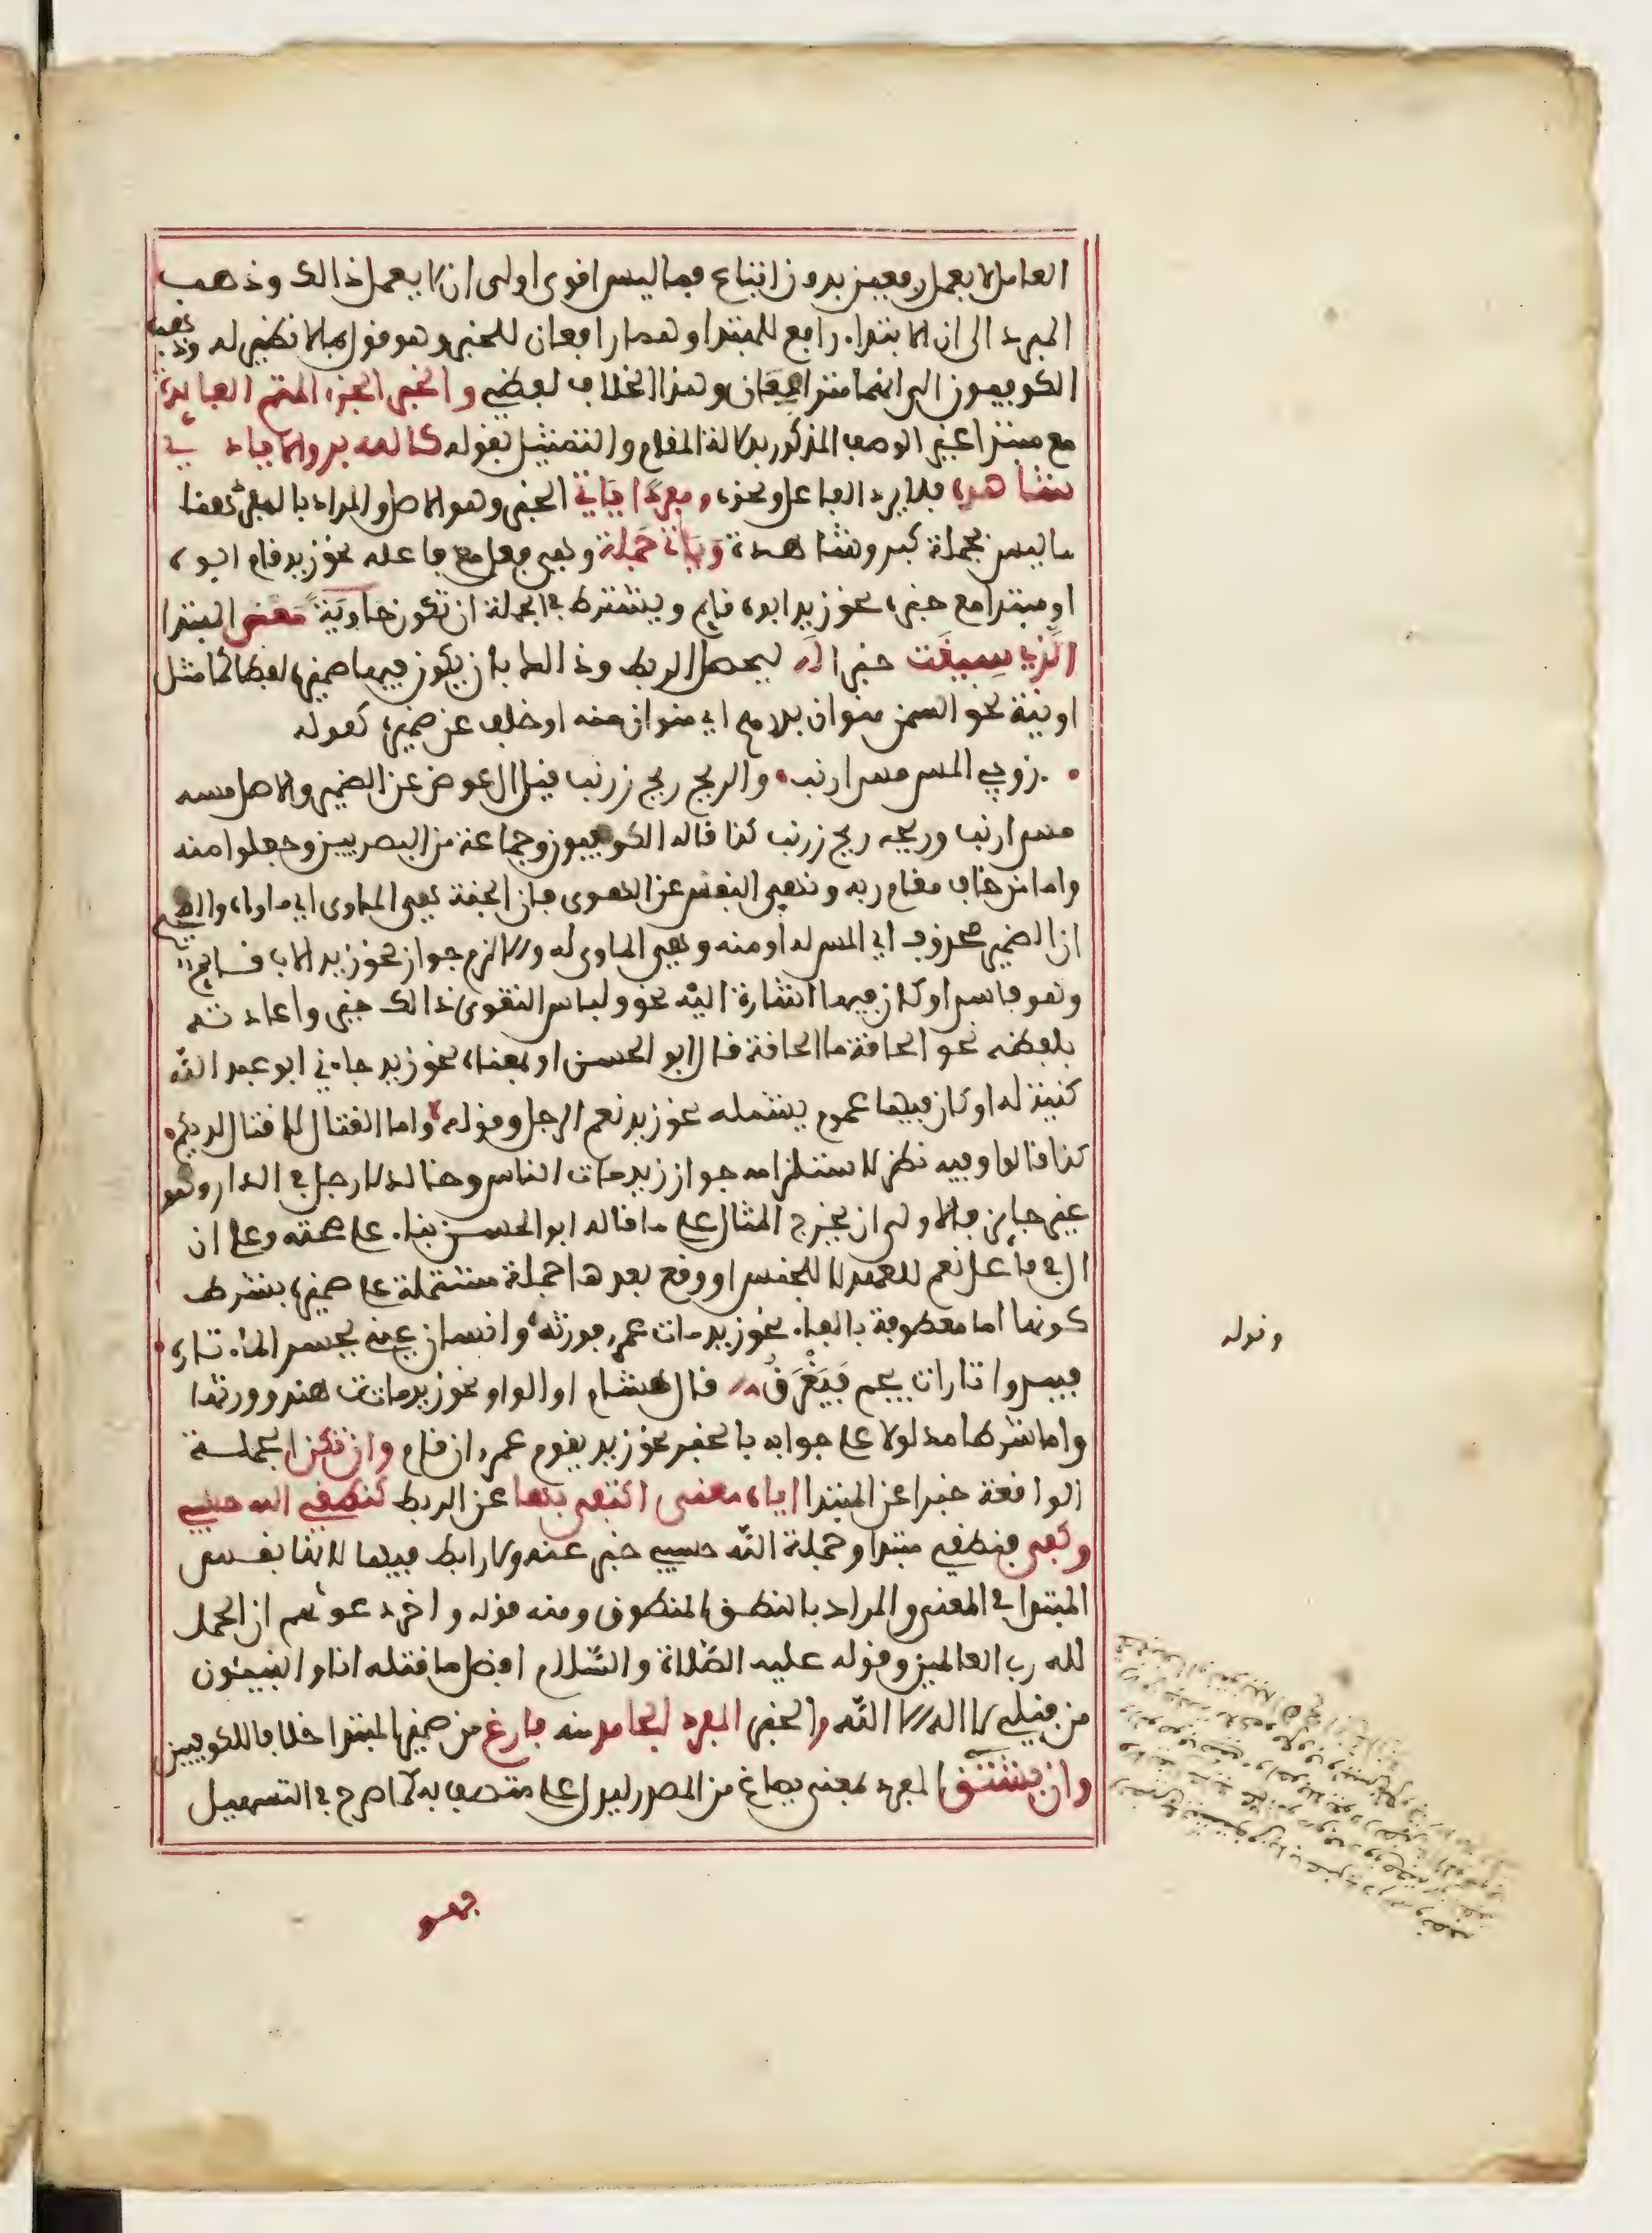 العامل لا يعمل رفعين بدون اتباع فما ليس اقوى اولى ان لا يعمل ذالك وذهب
المبرد الى ان الابتداء رافع للمبتدا وهما رافعان للخبر وهو قول بلا نظير له وذهب
الكوفيون الى انهما مترافعان وهذا الخلاف لفظي والخبر الجزء المتم الفايدة
مع مبتدا غير الوصف المذكور بدلالة المقام والتمثيل بقوله كالله بر والايادي
شاهدة فلا يرد الفاعل ونحوه ومفردا ياتي الخبر وهو الاصل والمراد بالمفرد هنا
ما ليس بجملة كبر وشاهدة وياتي جملة وهي فعل مع فاعله نحو زيد قام ابوه
او مبتدا مع خبره نحو زيد ابوه قايم ويشترط في الجملة ان تكون حاوية معنى المبتدا
الذي سيقت خبرا له ليحصل الربط وذالك بان يكون فيها ضميره لفظا كما مثل
او نية نحو السمن منوان بدرهم اي منوان منه او خلف عن ضميره كقوله
زوجي المس مس ارنب والريح ريح زرنب قيل ال عوض عن الضمير والاصل مسه
مس ارنب وريحه ريح زرنب كذا قاله الكوفيون وجماعة من البصريين وجعلوا منه
واما من خاف مقام ربه ونهى النفس عن الهوى فان الجنة هي الماوى اي ماواه والصحيح
ان الضمير محذوف اي المس له او منه وهي الماوى له والا لزم جواز نحو زيد الاب قايم
وهو فاسد او كان فيها اشارة اليه نحو ولباس التقوى ذالك خير واعادته
بلفظه نحو الحاقة ما الحاقة قال ابو الحسن او بمعناه نحو زيد جاءني ابو عبد الله
كنية له او كان فيها عموم يشمله نحو زيد نعم الرجل وقوله واما القتال لا قتال لديكم
كذا قالوا وفيه نظر لاستلزامه جواز زيد مات الناس وخالد لا رجل في الدار وهو
غير جايز فالاولى ان يخرج المثال على ما قاله ابو الحسن بناء على صحته وعلى ان
ال في فاعل نعم للعهد لا للجنس او وقع بعدها جملة مشتملة على ضميره بشرط
كونها اما معطوفة بالفاء نحو زيد مات عمرو فورثه وانسان عيني يحسر الماء تارة
فيبدوا تارات يجم فيغرق قال هشام او الواو نحو زيد ماتت هند وورثها
واما شرطا مدلولا على جوابه بالخبر نحو زيد يقوم عمرو ان قام وان تكن الجملة
الواقعة خبرا عن المبتدا اياه معنى اكتفى بها عن الربط كنطقي الله حسبي
وكفى فنطقي مبتدا وجملة الله حسبي خبر عنه ولا رابط فيها لانها نفس
المبتدا في المعنى والمراد بالنطق المنطوق ومنه قوله واخر دعواهم ان الحمد
لله رب العالمين وقوله عليه الصلاة والسلام افضل ما قلته انا والنبيئون
من قبلي لا اله الا الله والخبر المفرد الجامد منه فارغ من ضمير المبتدا خلافا للكوفيين
وان يشتق المفرد بمعنى يصاغ من المصدر ليدل على متصف به كما صرح في التسهيل
وقوله
فهو